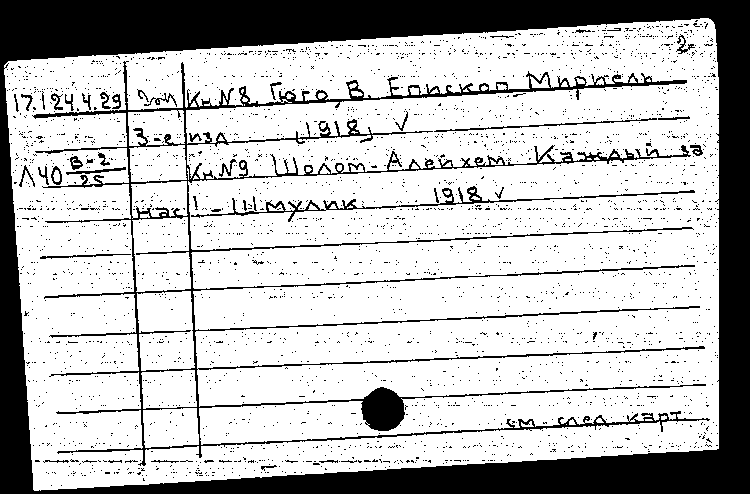 2
17.124.4.29 Кн. N8. Гюго, В. Епископ Мириель
3-е изд [1918] ✓
Л40 В-2/25 Кн. N9. Шолом-Алейхем. Каждый за
нас! - Шмулик 1918 ✓
см. след карт.